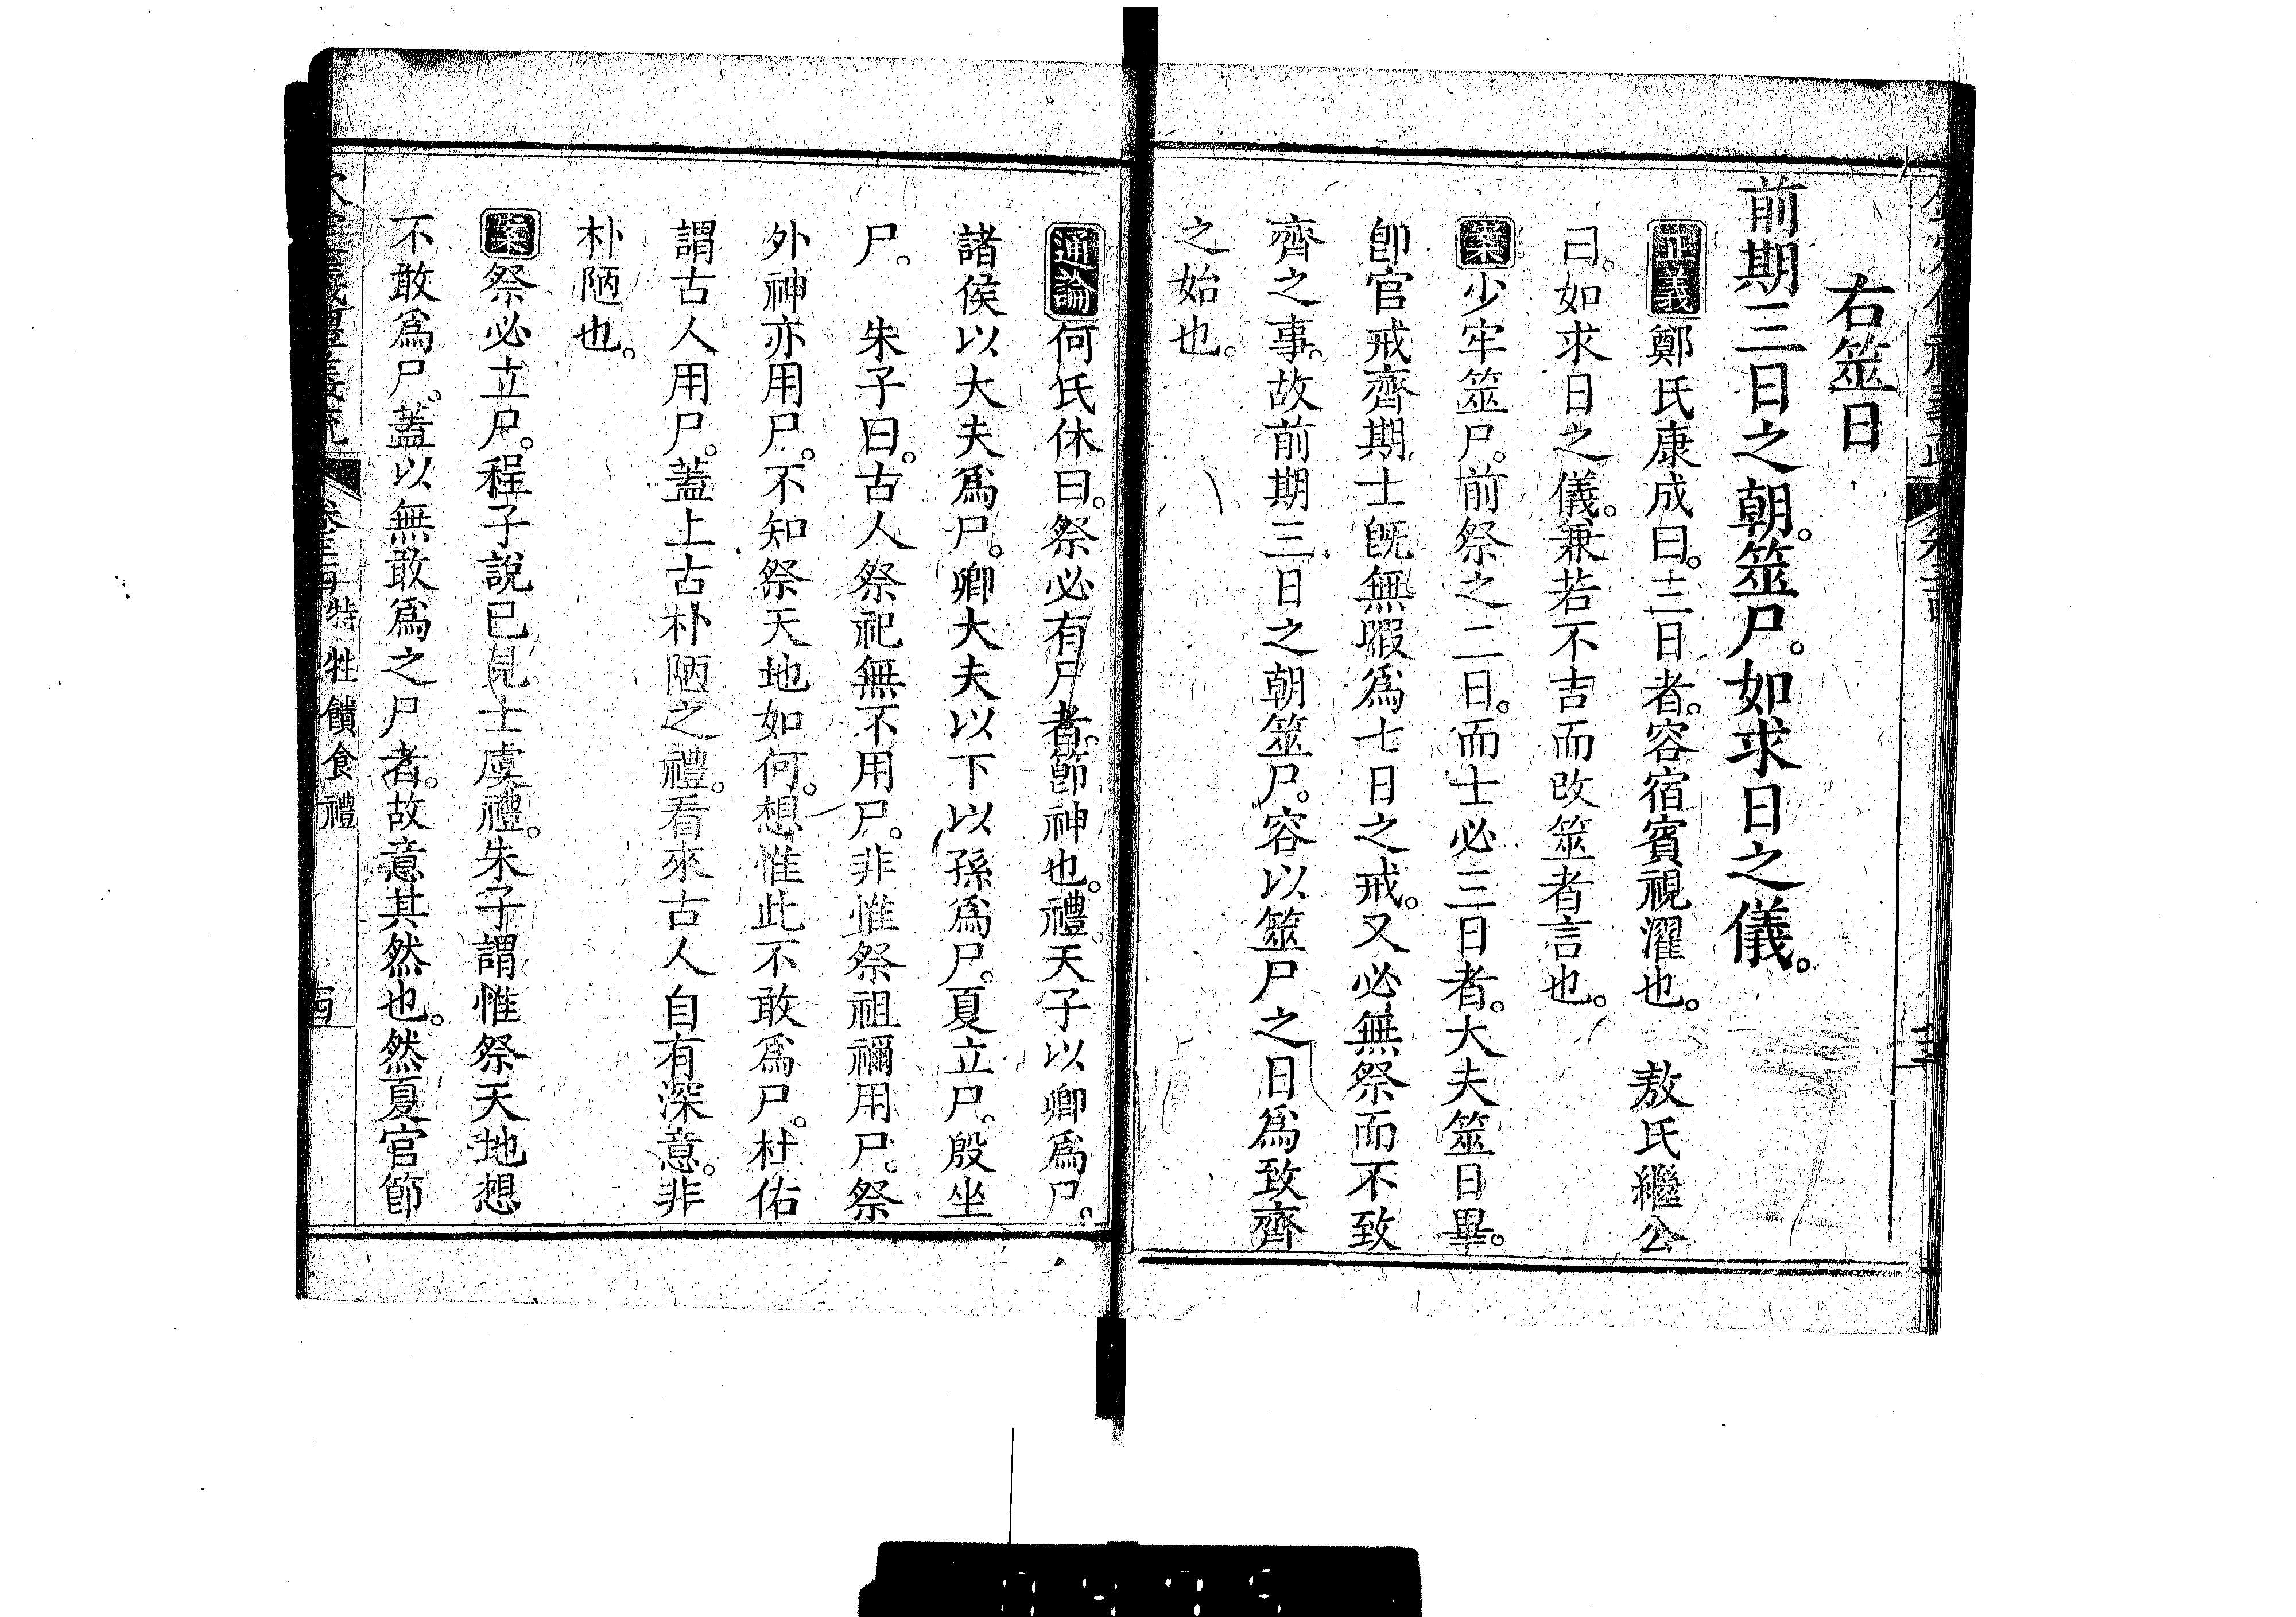 右筮日
前期三日之朝。筮尸。如求日之儀。
正義鄭氏康成曰。三日者。容宿賓視濯也。　敖氏繼公
曰。如求日之儀。兼若不吉而改筮者言也。
案少牢筮尸。前祭之二日。而士必三日者。大夫筮日畢。
卽官戒齊期士旣無暇爲七日之戒。又必無祭而不致
齊之事。故前期三日之朝筮尸。容以筮尸之日爲致齊
之始也。
通論何氏休曰。祭必有尸者。節神也。禮。天子以卿爲尸。
諸侯以大夫爲尸。卿大夫以下以孫爲尸。夏立尸。殷坐
尸。　朱子曰。古人祭祀無不用尸。非惟祭祖禰用尸。祭
外神亦用尸。不知祭天地如何。想惟此不敢爲尸。杜佑
謂古人用尸。蓋上古朴陋之禮。看來古人自有深意。非
朴陋也。
案祭必立尸。程子說已見士虞禮。朱子謂惟祭天地想
不敢爲尸。蓋以無敢爲之尸者。故意其然也。然夏官節
特牲饋食禮